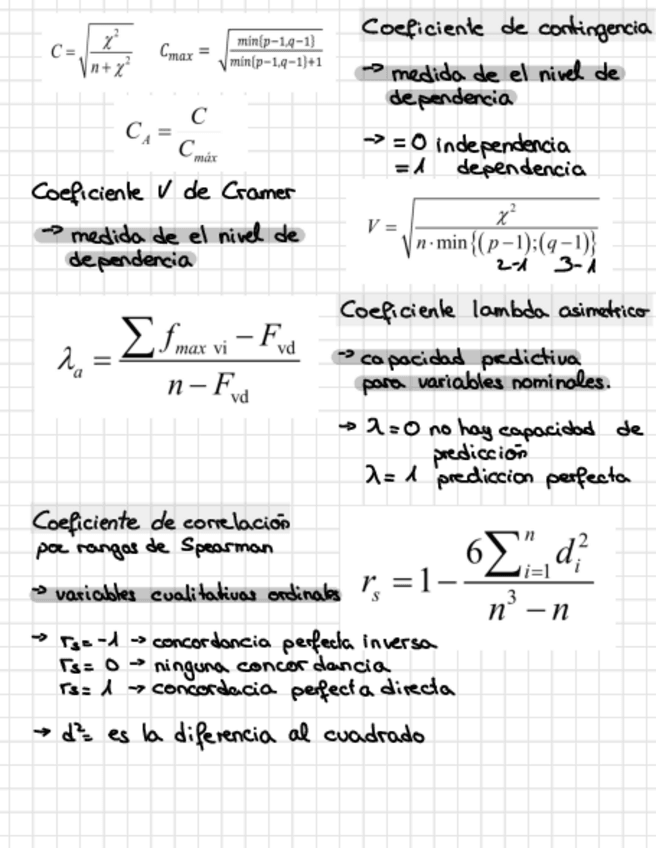 C = √(χ² / (n + χ²))    Cmax = √(min{p−1,q−1} / (min{p−1,q−1}+1))
C_A = C / C_máx
Coeficiente de contingencia
→ medida de el nivel de
dependencia
→ = 0 independencia
= 1 dependencia
Coeficiente V de Cramer
→ medida de el nivel de
dependencia
V = √(χ² / (n·min{(p−1);(q−1)}))
2-1 3-1
λ_a = (∑ f_max vi − F_vd) / (n − F_vd)
Coeficiente lambda asimetrico
→ capacidad predictiva
para variables nominales.
→ λ=0 no hay capacidad de
prediccion
λ= 1 prediccion perfecta
Coeficiente de correlación
por rangos de Spearman
→ variables cualitativas ordinales
r_s = 1 − (6∑_{i=1}^{n} d_i²) / (n³ − n)
→ rs= -1 → concordancia perfecta inversa
rs= 0 → ninguna concordancia
rs= 1 → concordacia perfecta directa
→ d²= es la diferencia al cuadrado